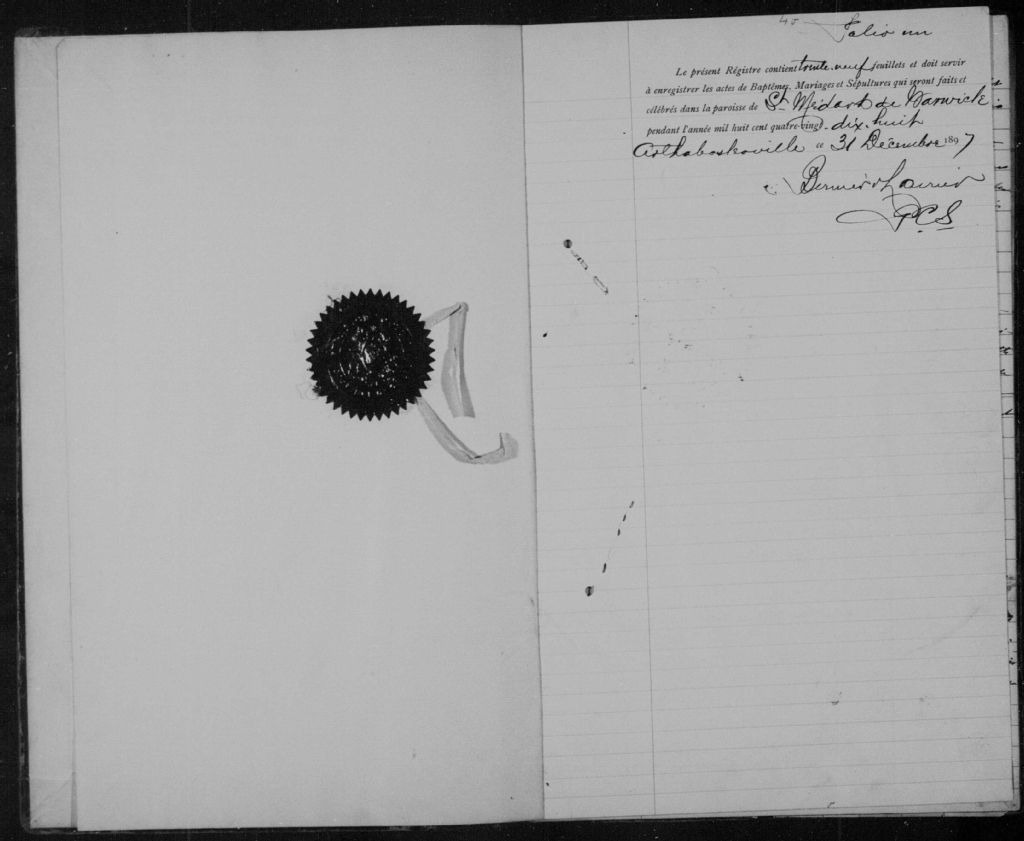 45 Folio un
Le présent Régistre contient trente-neuf feuillets et doit servir
à enregistrer les actes de Baptêmes, Mariages et Sépultures qui seront faits et
célébrés dans la paroisse de St Médard de Warwick
pendant l'année mil huit cent quatre-vingt-dix-huit
Arthabaskaville ce 31 Décembre 1897
P.C.S